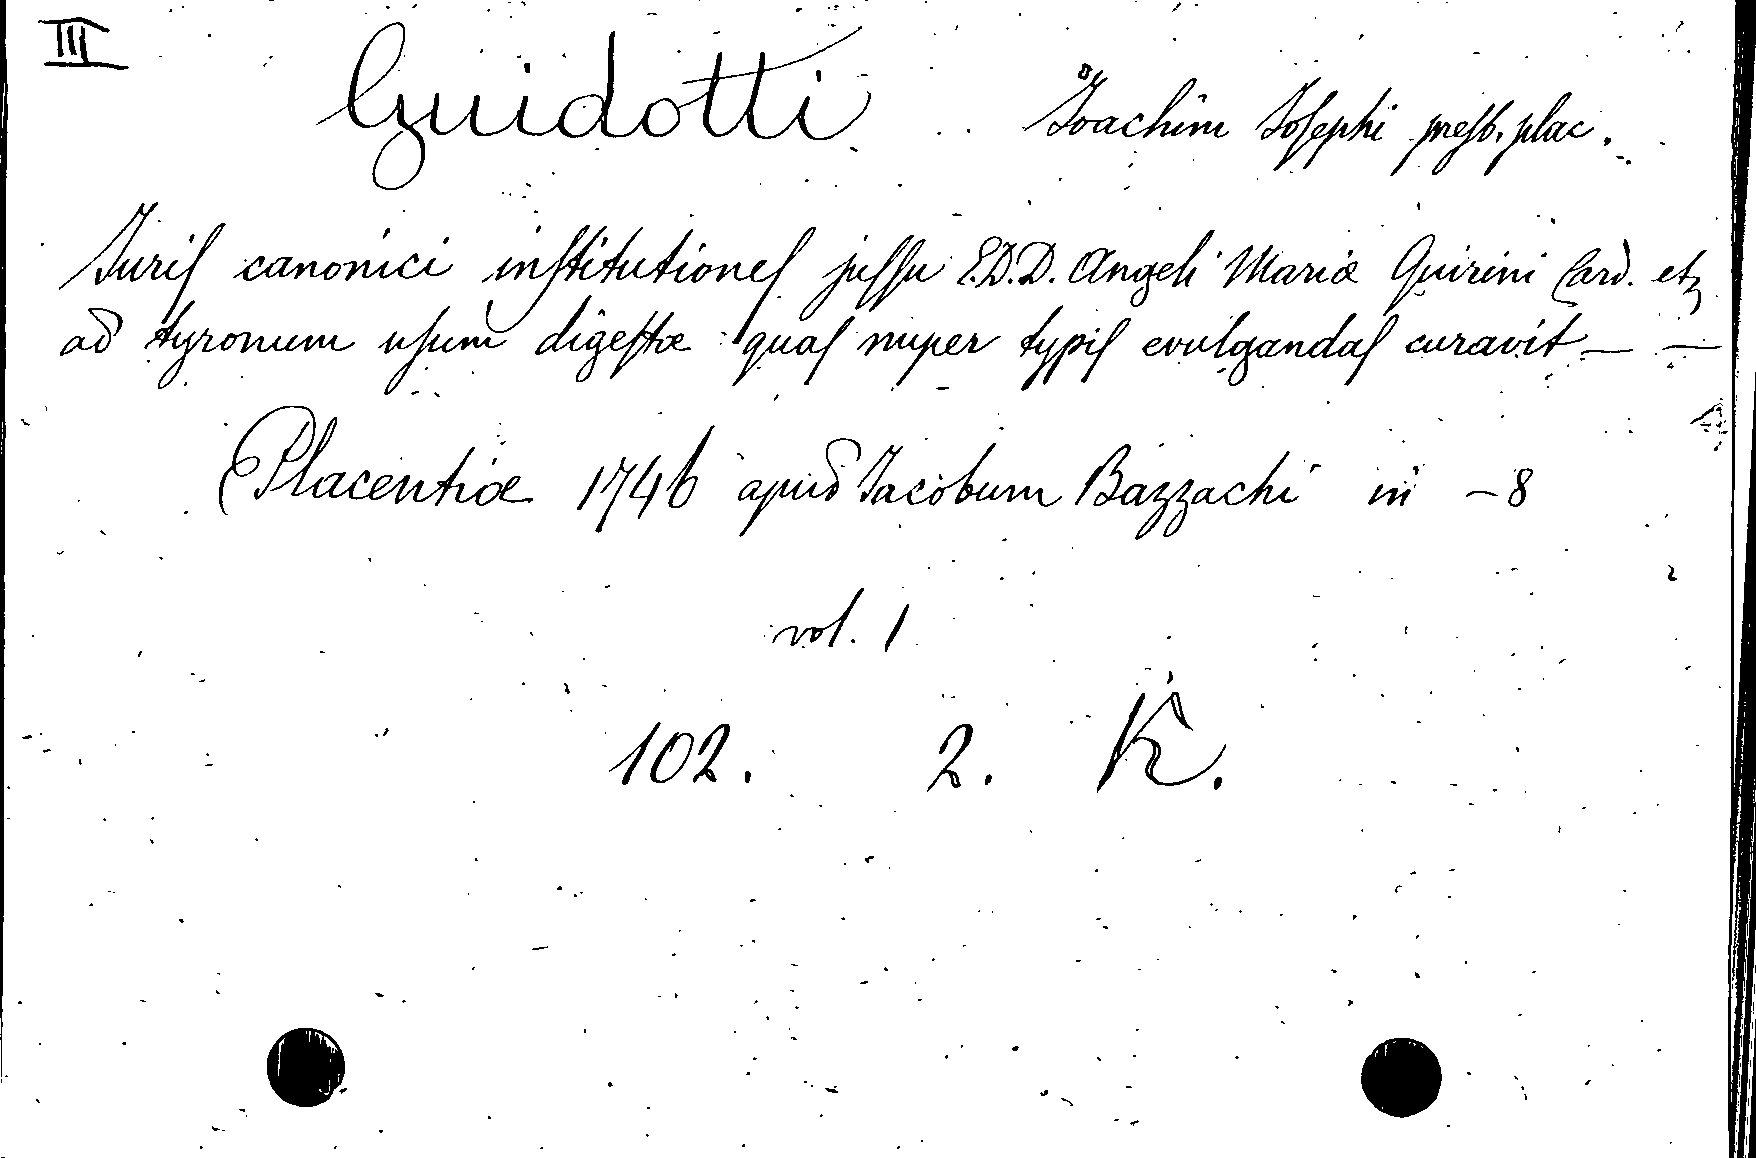 III
Guidotti Joachim Josephi presb. plac.
Juris canonici institutiones jussu E.D.D. Angeli Mariæ Quirini Card. etz
ad tyronum usum digestæ quas nuper typis evulgandas curavit — —
Placentiæ 1746 apud Jacobum Bazzachi in - 8
vol. 1
102. 2. K.